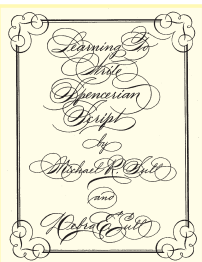 Learning To
Write
Spencerian
Script
by
Michael R. Sull
and
Debra E. Sull